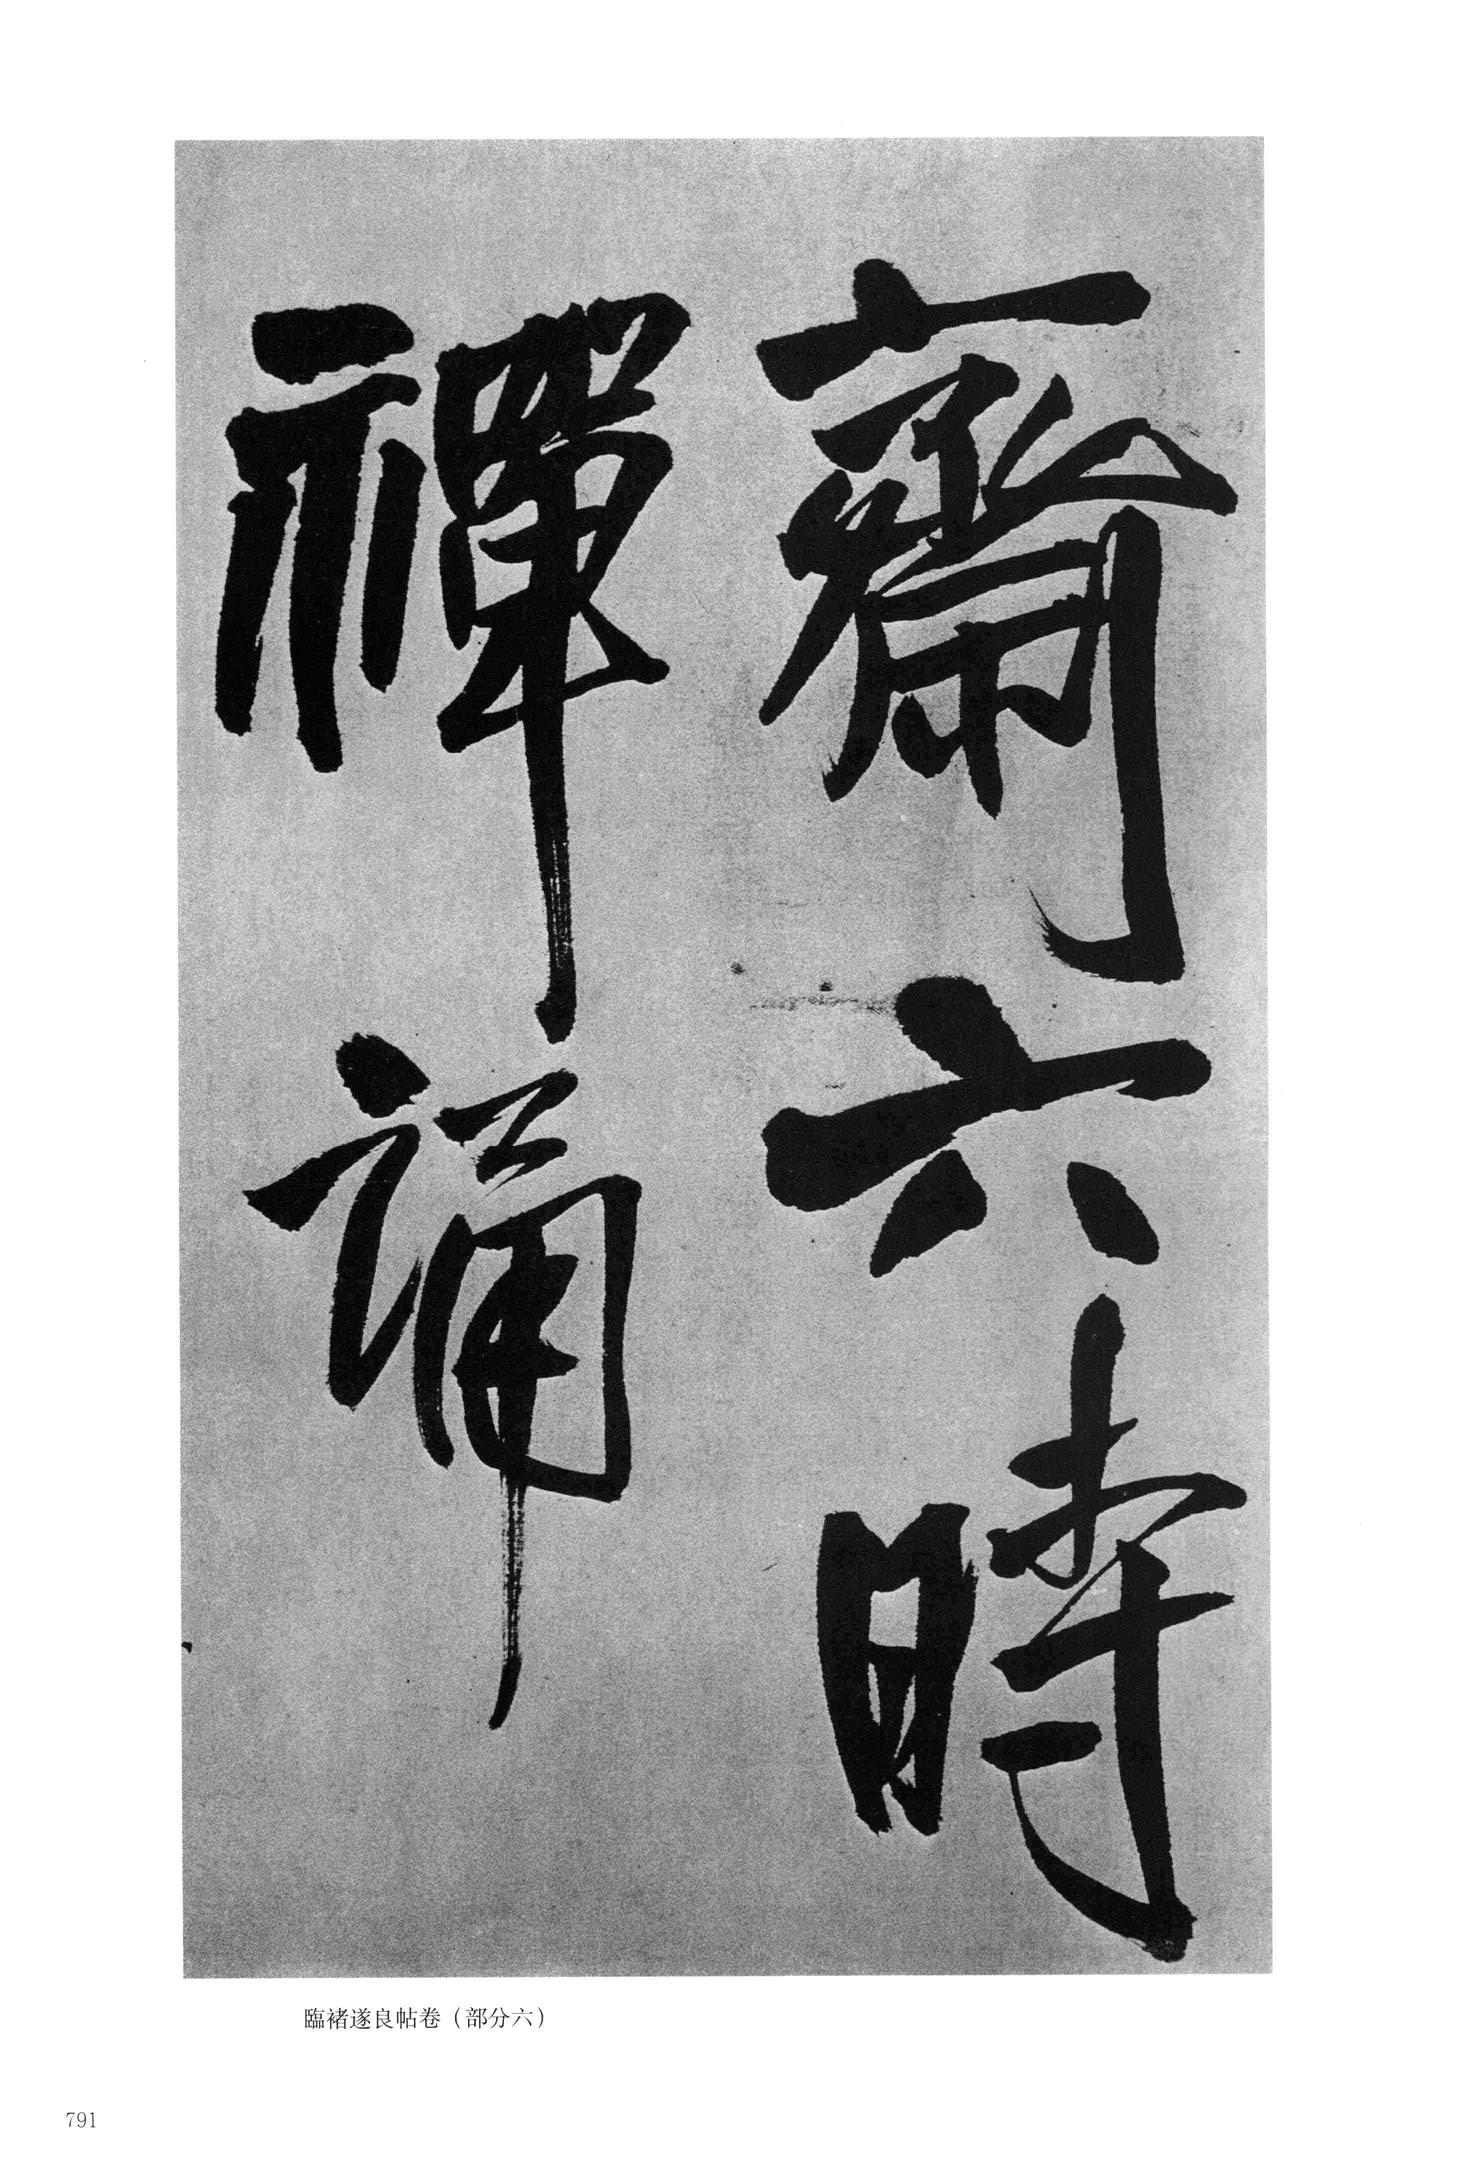 齋六時
禪誦
臨褚遂良帖卷（部分六）
791